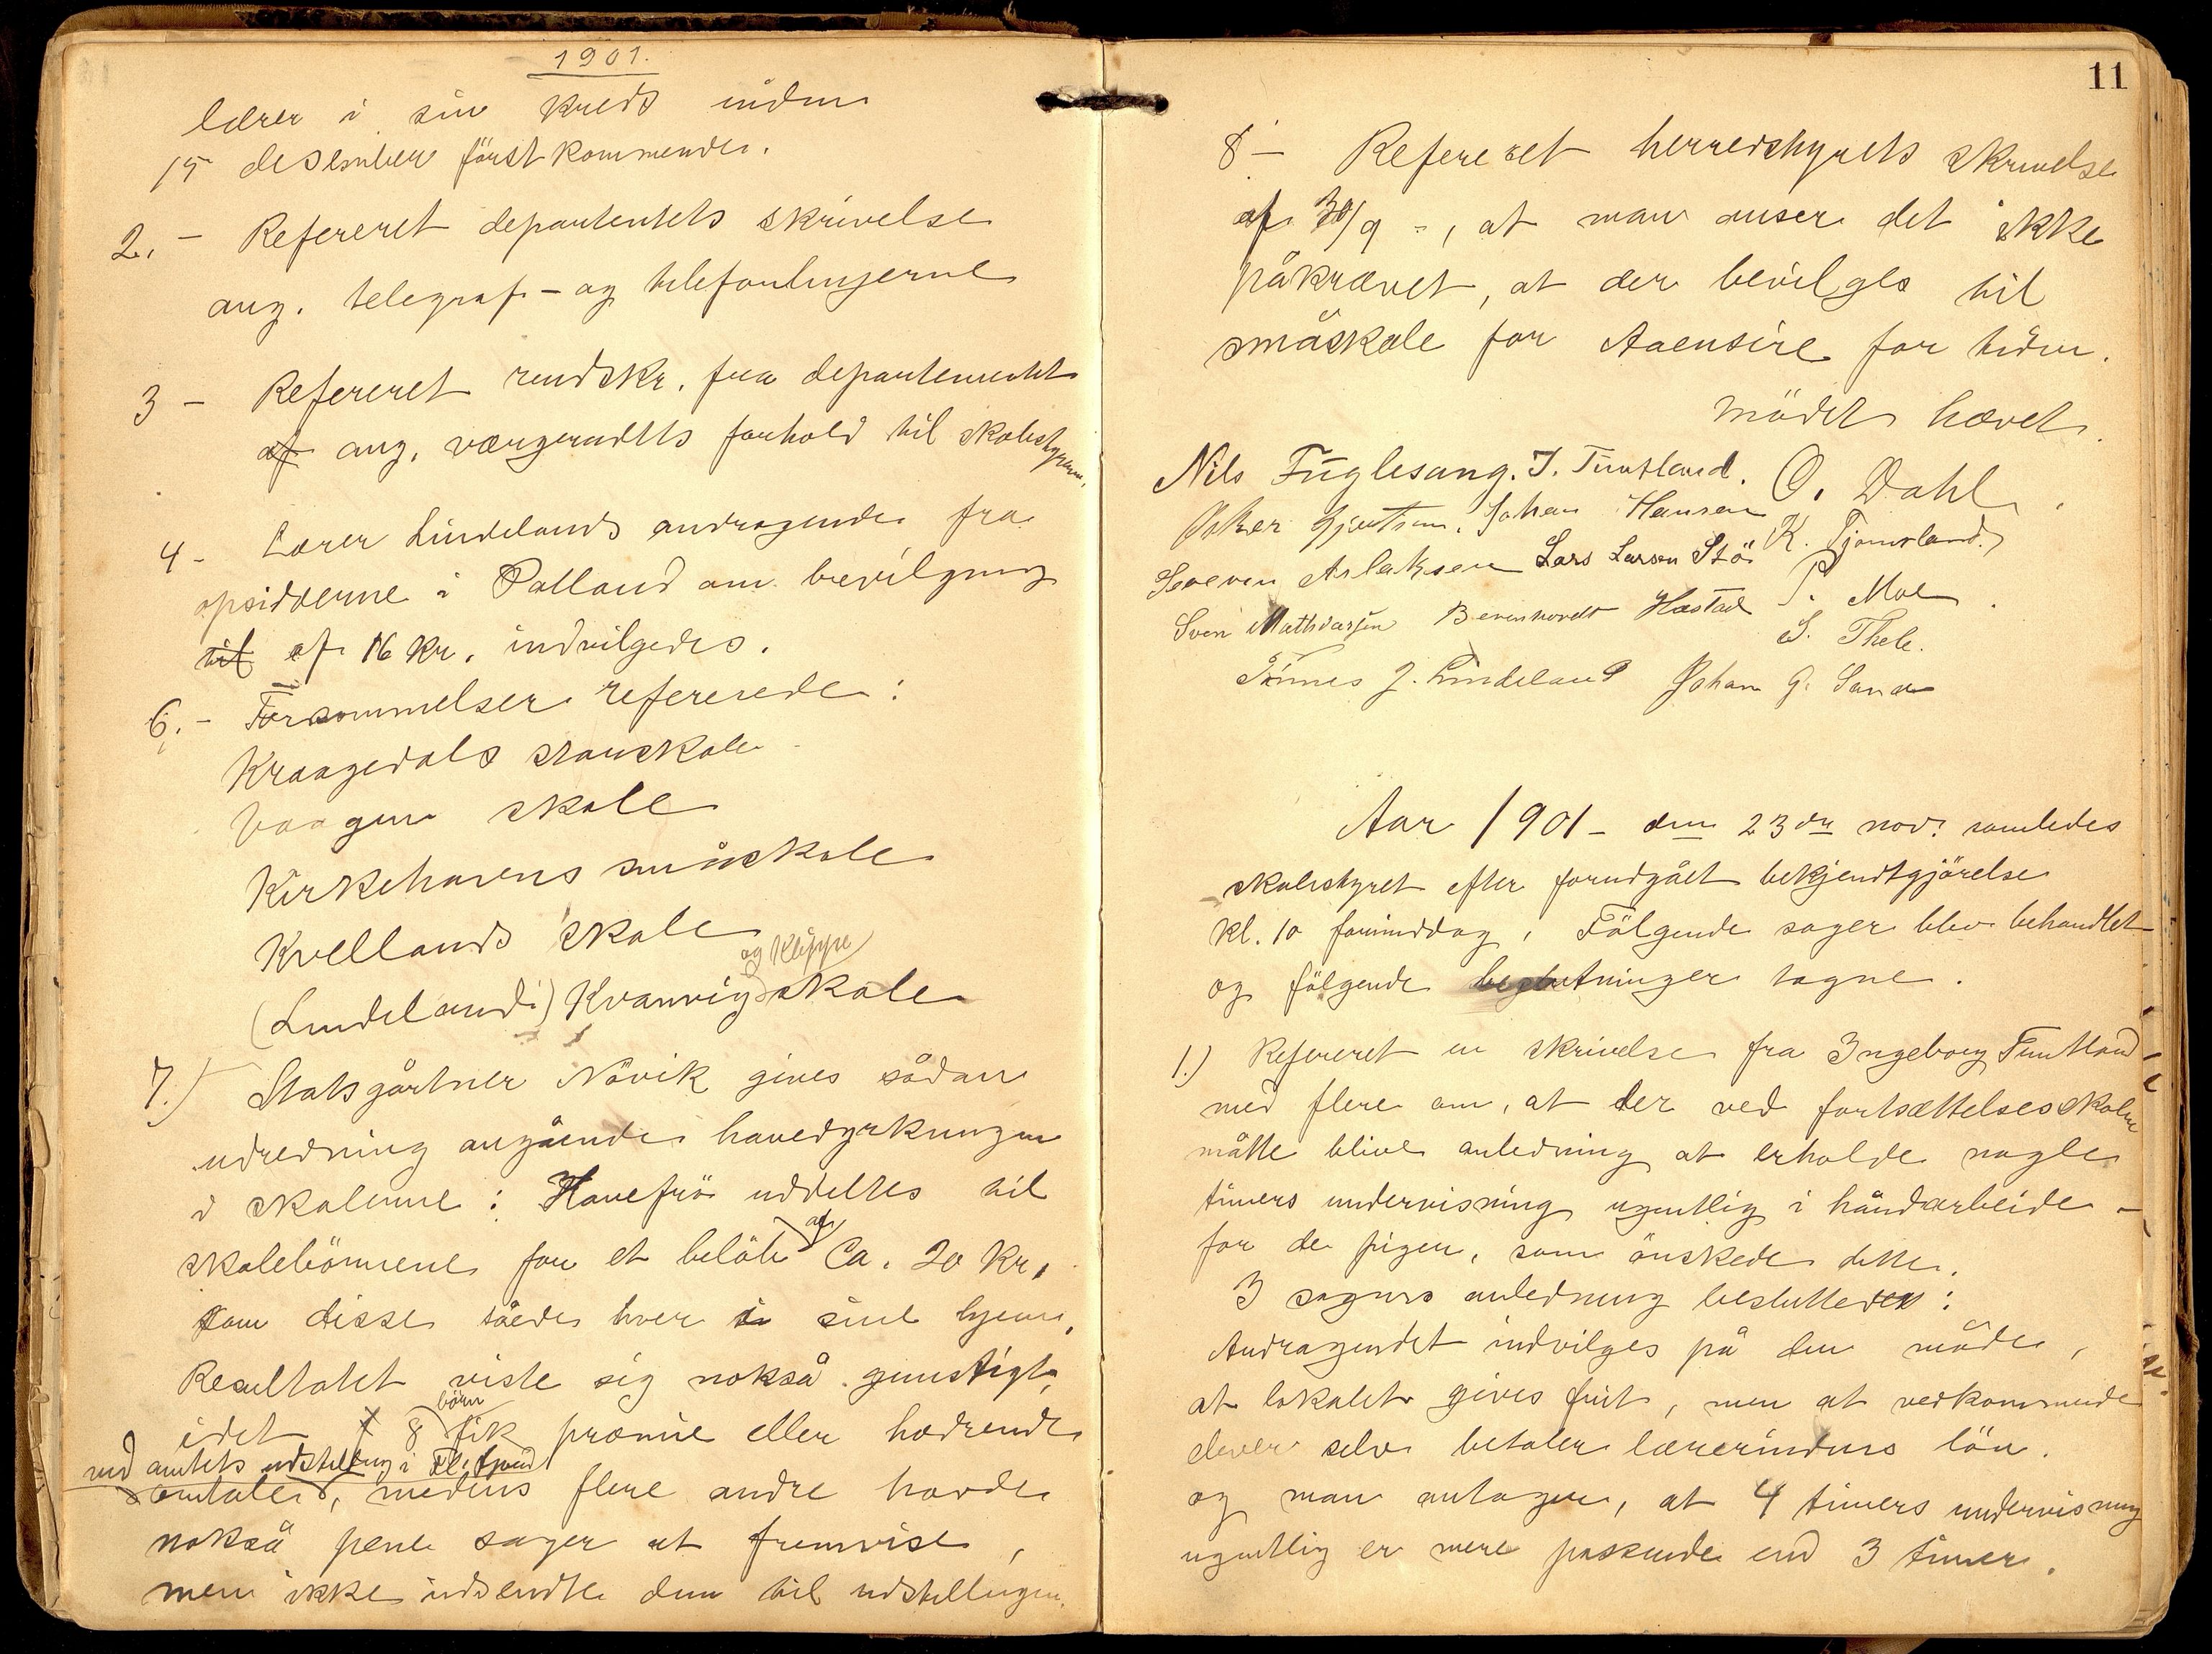 1901.
lærer i sin kreds inden
15 desember förstkommende.
2. - Refereret departentets skrivelse
ang. telegraf- og telefonlinjerne
3 - Refereret rundskr. fra departementet
af ang. værgerådets forhold til skolestyrerne.
4 - Lærer Lindelands andragende fra
opsidderne i Østland om bevilgning
til af 16 kr. indvilgedes.
6. - Forsømmelser refererede:
Kraagedals storskole
Vaagen skole
Kirkehavens småskole
Kvellands skole
og Kleppe
(Lindeland) Kvanvig skole
7.) Statsgårtner Növik gives sådan
udredning angående havedyrkningen
i skolerne: Havefrö uddeltes til
skolebörnene for et belöb af Ca. 20 kr,
som disse såede hver i sine hjem,
Resultatet viste sig nokså gunstigt,
idet 8 börn fik præmie eller hædrende
ved amtets udstilling i Flekkefjord
omtale, medens flere andre havde
nokså pene sager at fremvise,
men ikke indsendte dem til udstillingen.
11
8 - Refereret herredstyrets skrivelse
af 30/9 -, at man anser det ikke
påkrævet, at der bevilges til
småskole for Aaensire for tiden.
Mödet hævet.
Nils Fuglesang. J. Tuntland. O. Dahl.
Johan Hansen K. Tjomsland.
Severin Aslaksen Lars Larsen Stö
Sven Mathiassen Berenhardt Hastad P. Moe.
S. Thele.
Tönnes J. Lindeland Johan G. Sande
Aar 1901 - den 23de nov. samledes
skolestyret efter forudgået bekjendtgjörelse
kl. 10 formiddag. Fölgende sager blev behandlet
og fölgende beslutninger tagne.
1.) Refereret en skrivelse fra Ingeborg Tuntland
med flere om, at der ved fortsættelsesskolen
måtte blive anledning at erholde nogle
timers undervisning ugentlig i håndarbeide -
for de piger, som önskede dette.
I sagens anledning besluttedes:
Andragendet indvilges på den måde,
at lokalet gives frit, men at vedkommende
elever selv betaler lærerindens lön.
og man antager, at 4 timers undervisning
ugentlig er mere passende end 3 timer.